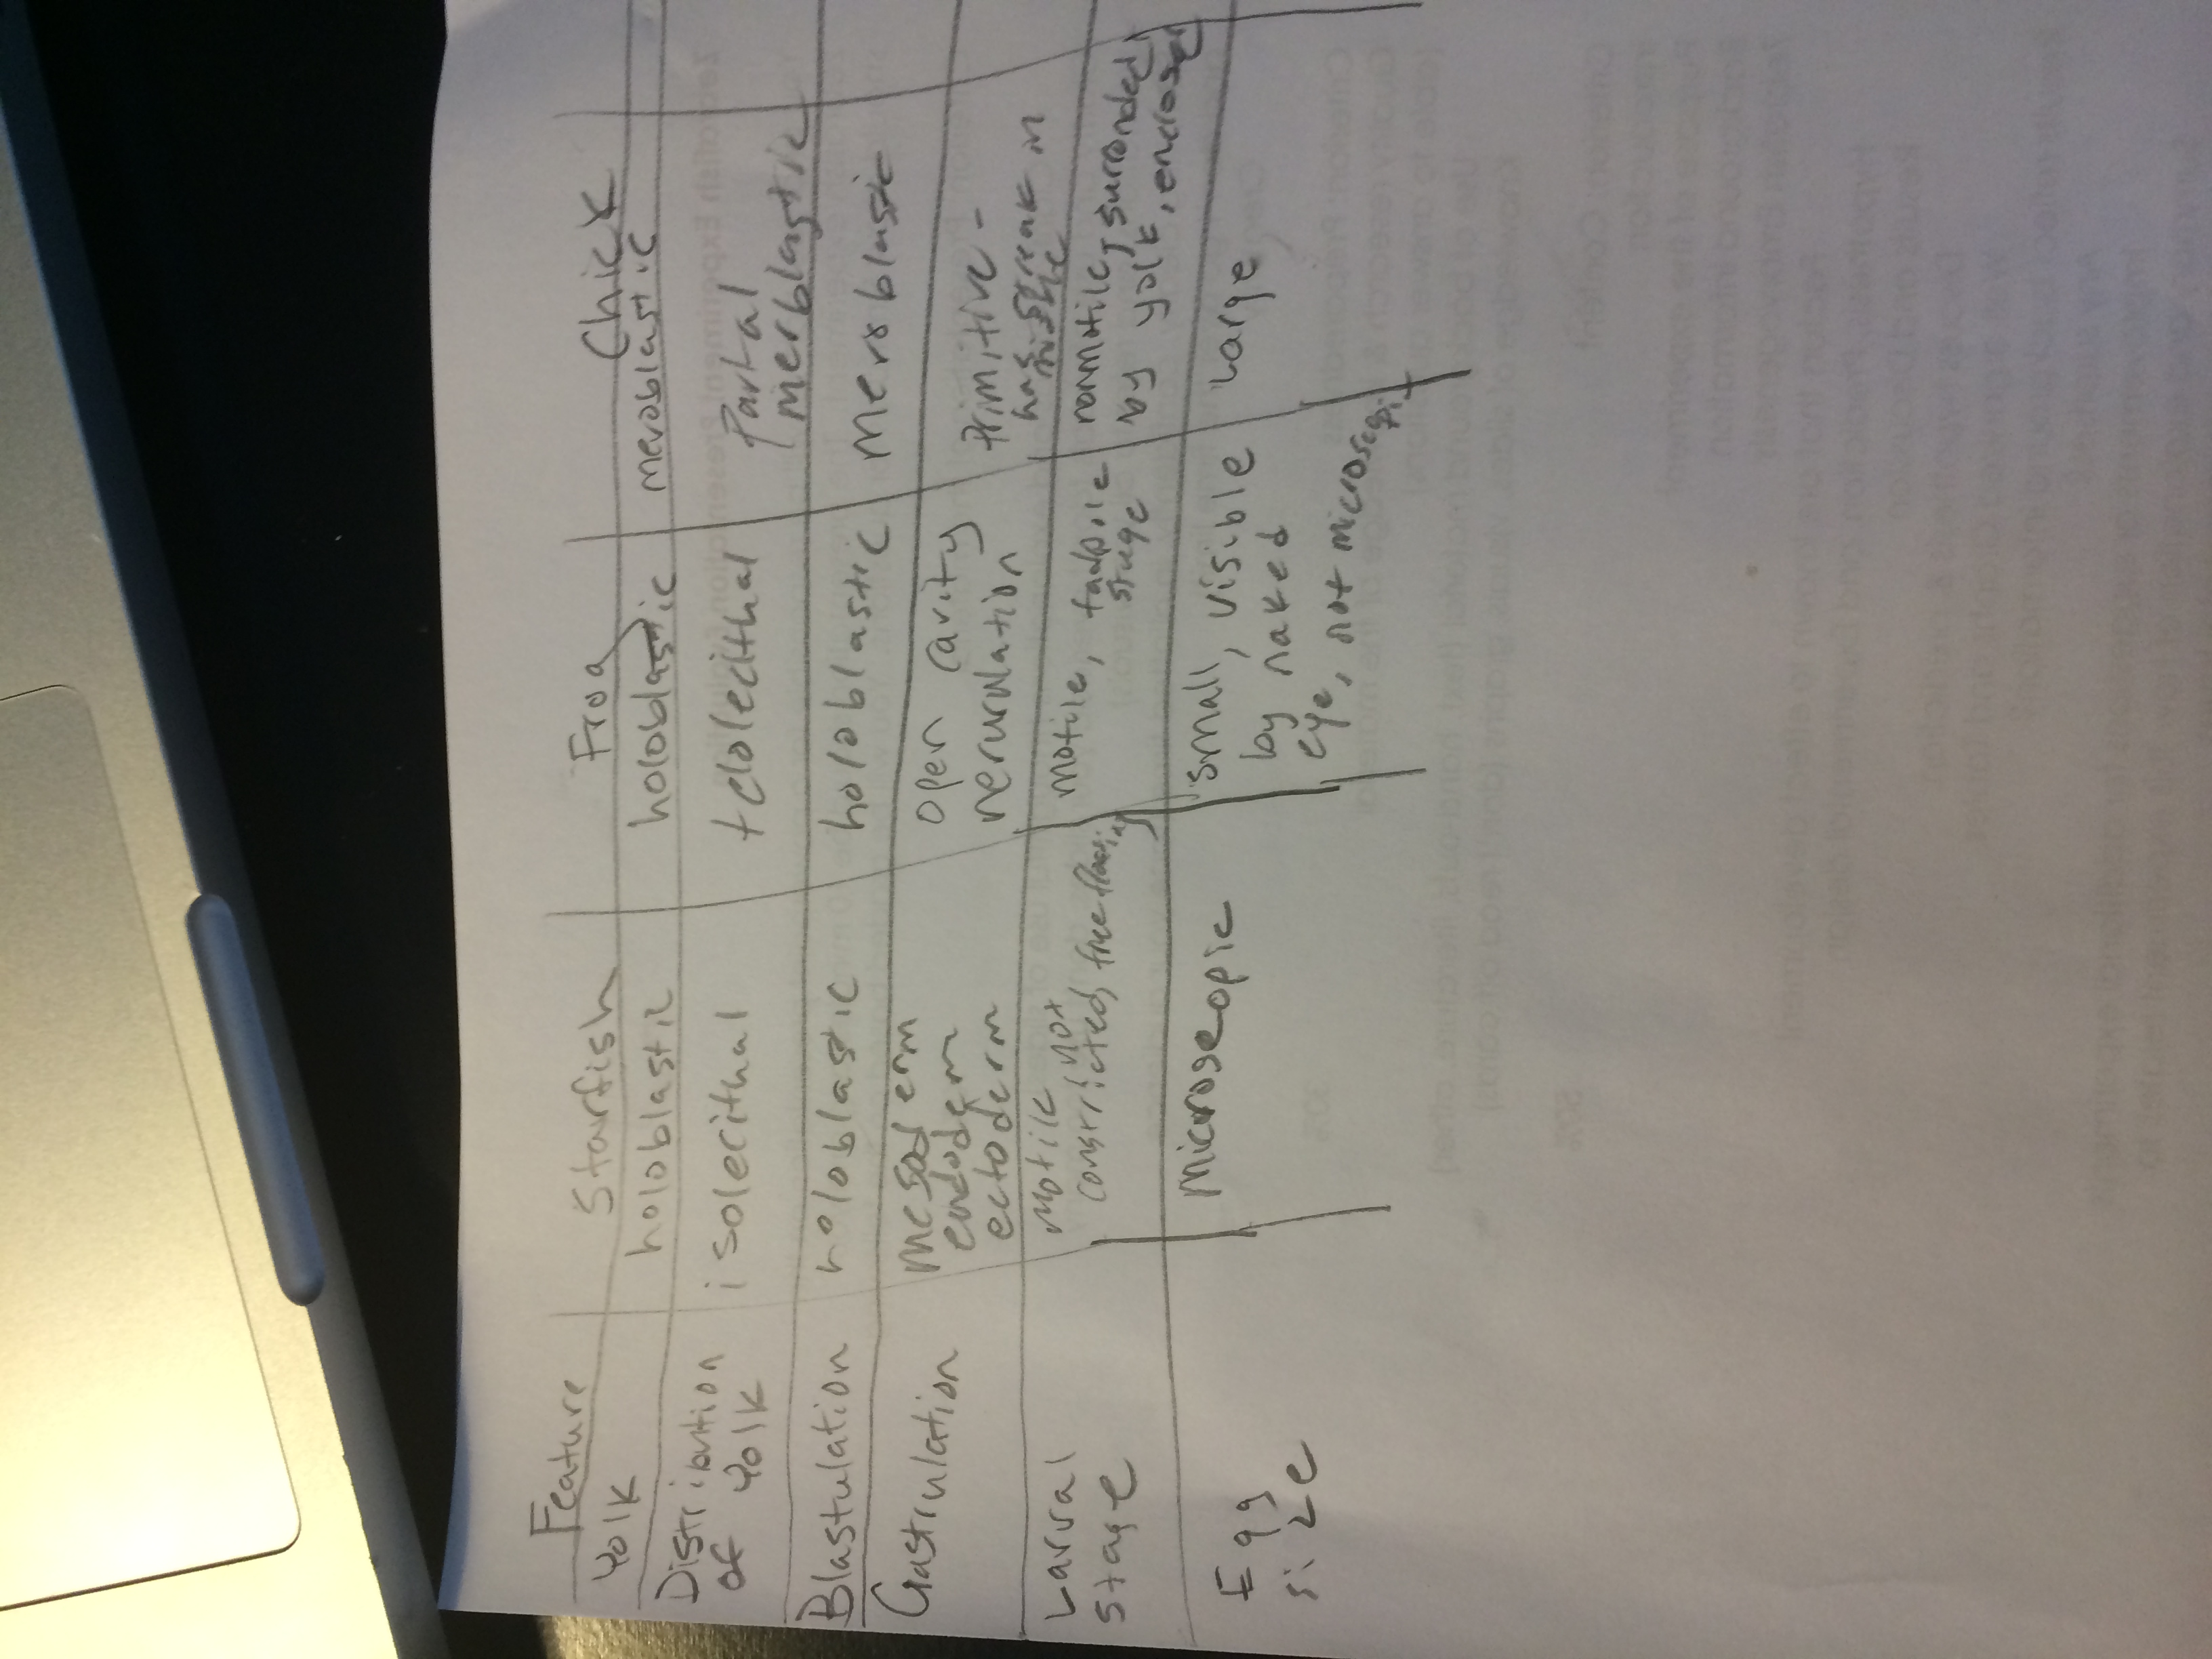 Feature Starfish Frog Chick
Yolk holoblastic holoblastic meroblastic
Distribution of yolk
isolecithal
telolecithal
Partal
merblastic
Blastulation holoblastic holoblastic meroblastic
Gastrulation
mesoderm
endoderm
ectoderm
open cavity
nerurulation
Primitive -
has streak in
Larval
stage
motile
not
constricted, free floating
motile, tadpole
stage
nonmotile, surronded
by yolk, encrosed
Egg
size
Microscopic
small, visible
by naked
eye, not microscopic
Large